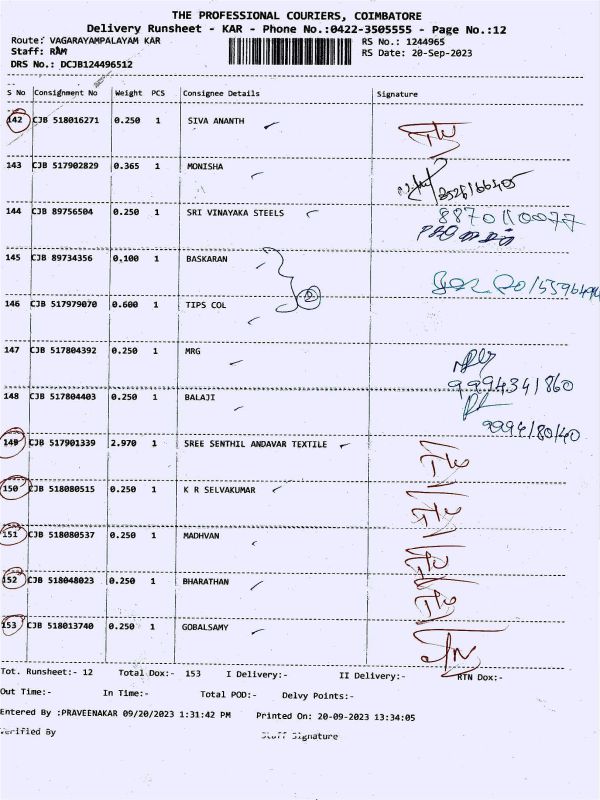 THE PROFESSIONAL COURIERS, COIMBATORE
Delivery Runsheet - KAR - Phone No.:0422-3505555 - Page No.:12
Route: VAGARAYAMPALAYAM KAR RS No.: 1244965
Staff: RAM RS Date: 20-Sep-2023
DRS No.: DCJB124496512
S No Consignment No Weight PCS Consignee Details Signature
142 CJB 518016271 0.250 1 SIVA ANANTH
143 CJB 517902829 0.365 1 MONISHA
144 CJB 89756504 0.250 1 SRI VINAYAKA STEELS
8870110077
145 CJB 89734356 0.100 1 BASKARAN
146 CJB 517979070 0.600 1 TIPS COL
147 CJB 517804392 0.250 1 MRG
9994341860
148 CJB 517804403 0.250 1 BALAJI
149 CJB 517901339 2.970 1 SREE SENTHIL ANDAVAR TEXTILE
150 CJB 518080515 0.250 1 K R SELVAKUMAR
151 CJB 518080537 0.250 1 MADHVAN
152 CJB 518048023 0.250 1 BHARATHAN
153 CJB 518013740 0.250 1 GOBALSAMY
Tot. Runsheet:- 12 Total Dox:- 153 I Delivery:- II Delivery:- RTN Dox:-
Out Time:- In Time:- Total POD:- Delvy Points:-
Entered By :PRAVEENAKAR 09/20/2023 1:31:42 PM Printed On: 20-09-2023 13:34:05
Verified By Staff Signature